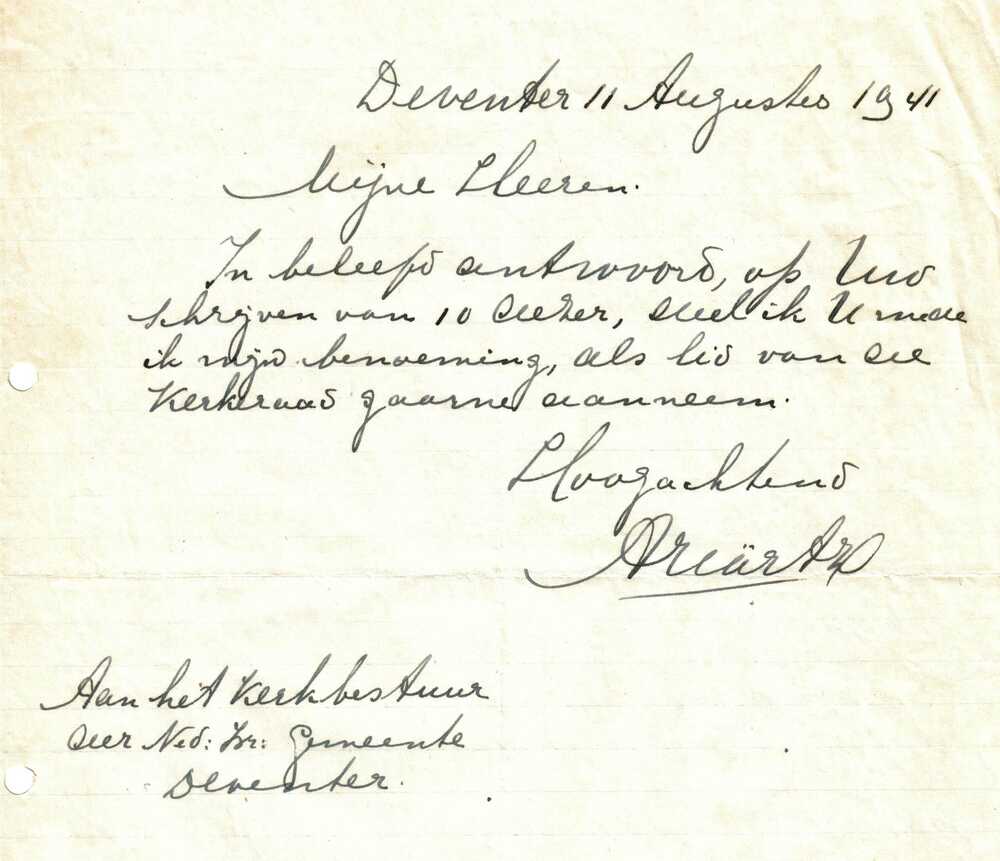 Deventer 11 Augustus 1941
Mijne Heeren.
In beleefd antwoord, op Uw
schrijven van 10 dezer, deel ik U mede
ik mijn benoeming, als lid van de
Kerkeraad gaarne aanneem.
Hoogachtend
Aan het Kerkbestuur
der Ned: Isr: Gemeente
Deventer.